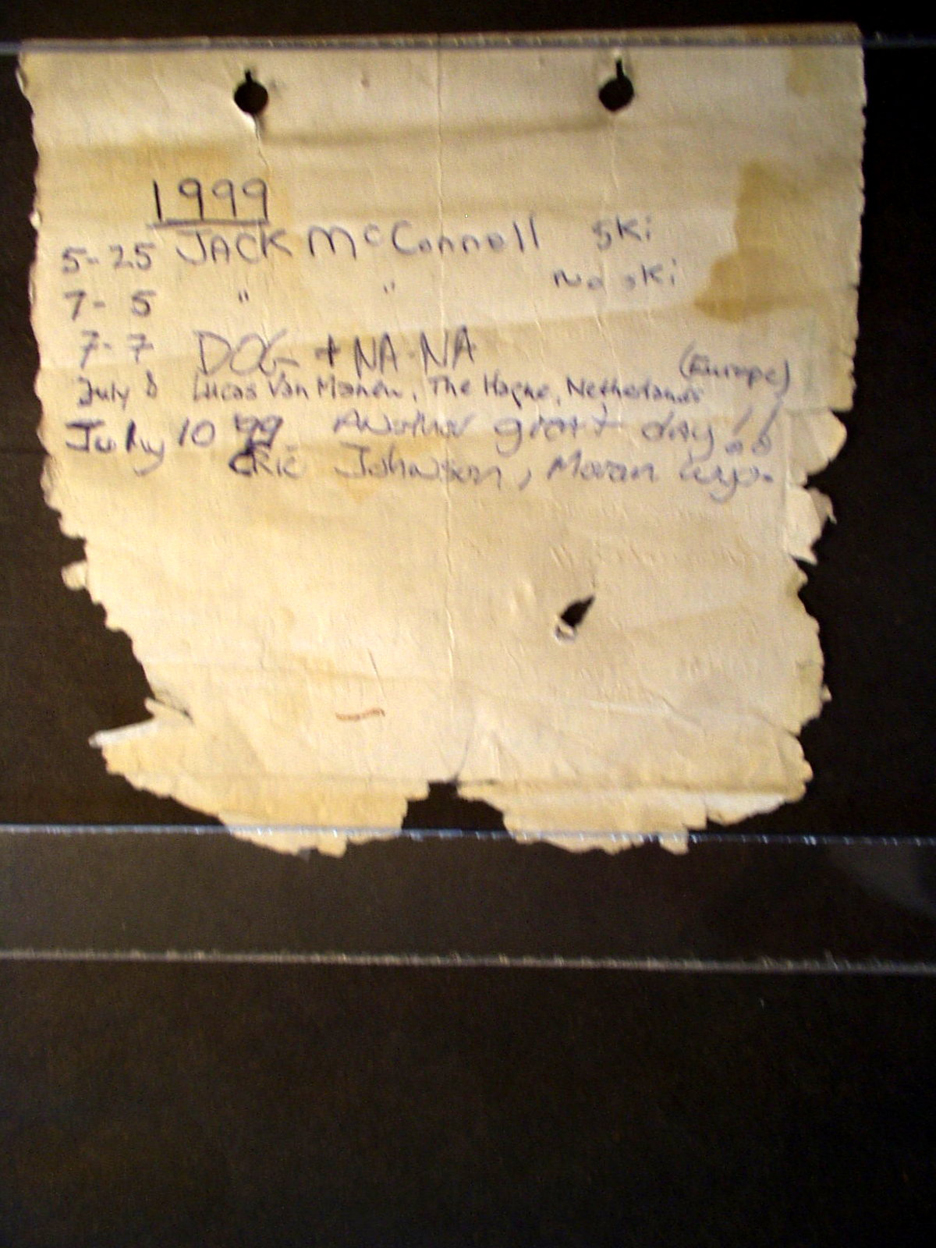 1999
5-25 JACK McConnell ski
7- 5 " " no ski
7-7 DOG + NA-NA
(Europe)
July 8 Lucas Van Manew, The Hague, Netherlands
July 10 99 Another great day!!
Eric Johnson, Moran Wyo.